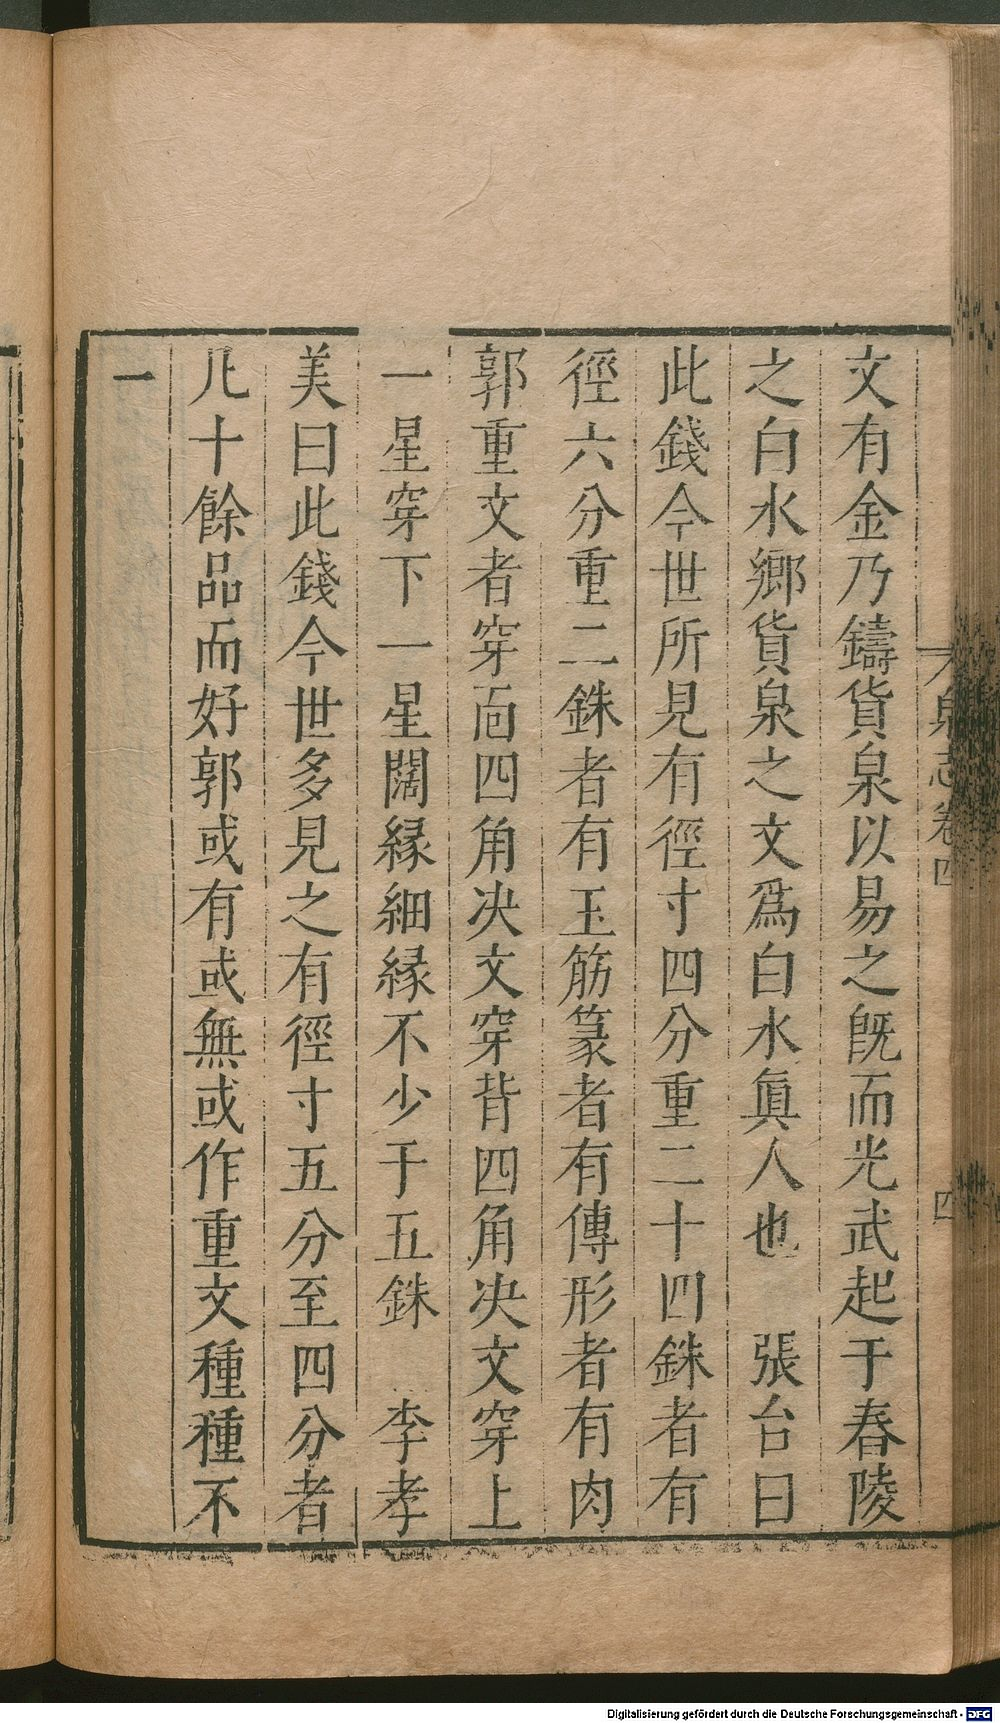 泉志卷四
四
文有金乃鑄貨泉以易之旣而光武起于舂陵
之白水鄉貨泉之文爲白水眞人也　張台曰
此錢今世所見有徑寸四分重二十四銖者有
徑六分重二銖者有玉筋篆者有傳形者有肉
郭重文者穿面四角决文穿背四角决文穿上
一星穿下一星闊緣細緣不少于五銖　李孝
美曰此錢今世多見之有徑寸五分至四分者
凡十餘品而好郭或有或無或作重文種種不
一
Digitalisierung gefördert durch die Deutsche Forschungsgemeinschaft - DFG